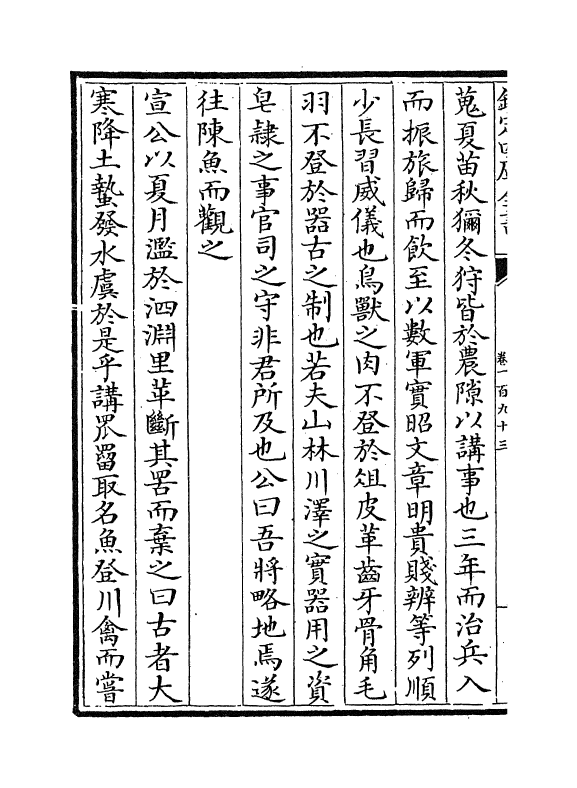 欽定四庫全書
卷一百九十三
蒐夏苗秋獮冬狩皆於農隙以講事也三年而治兵入
而振旅歸而飲至以數軍實昭文章明貴賤辨等列順
少長習威儀也鳥獸之肉不登於俎皮革齒牙骨角毛
羽不登於器古之制也若夫山林川澤之實器用之資
皂隸之事官司之守非君所及也公曰吾將略地焉遂
往陳魚而觀之
宣公以夏月濫於泗淵里革斷其罟而棄之曰古者大
寒降土蟄發水虞於是乎講罛罶取名魚登川禽而嘗